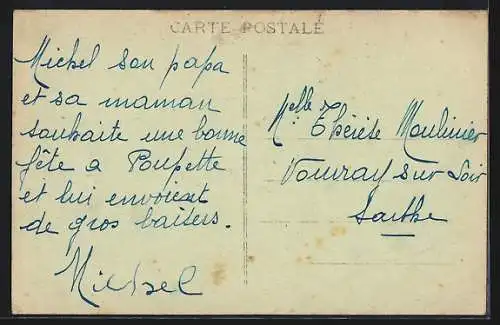 CARTE POSTALE
Michel son papa
et sa maman
souhaite une bonne
fête a Poupette
et lui envoient
de gros baisers.
Michel
Melle Thérèse Moulinier
Vouvray sur Loir
Sarthe